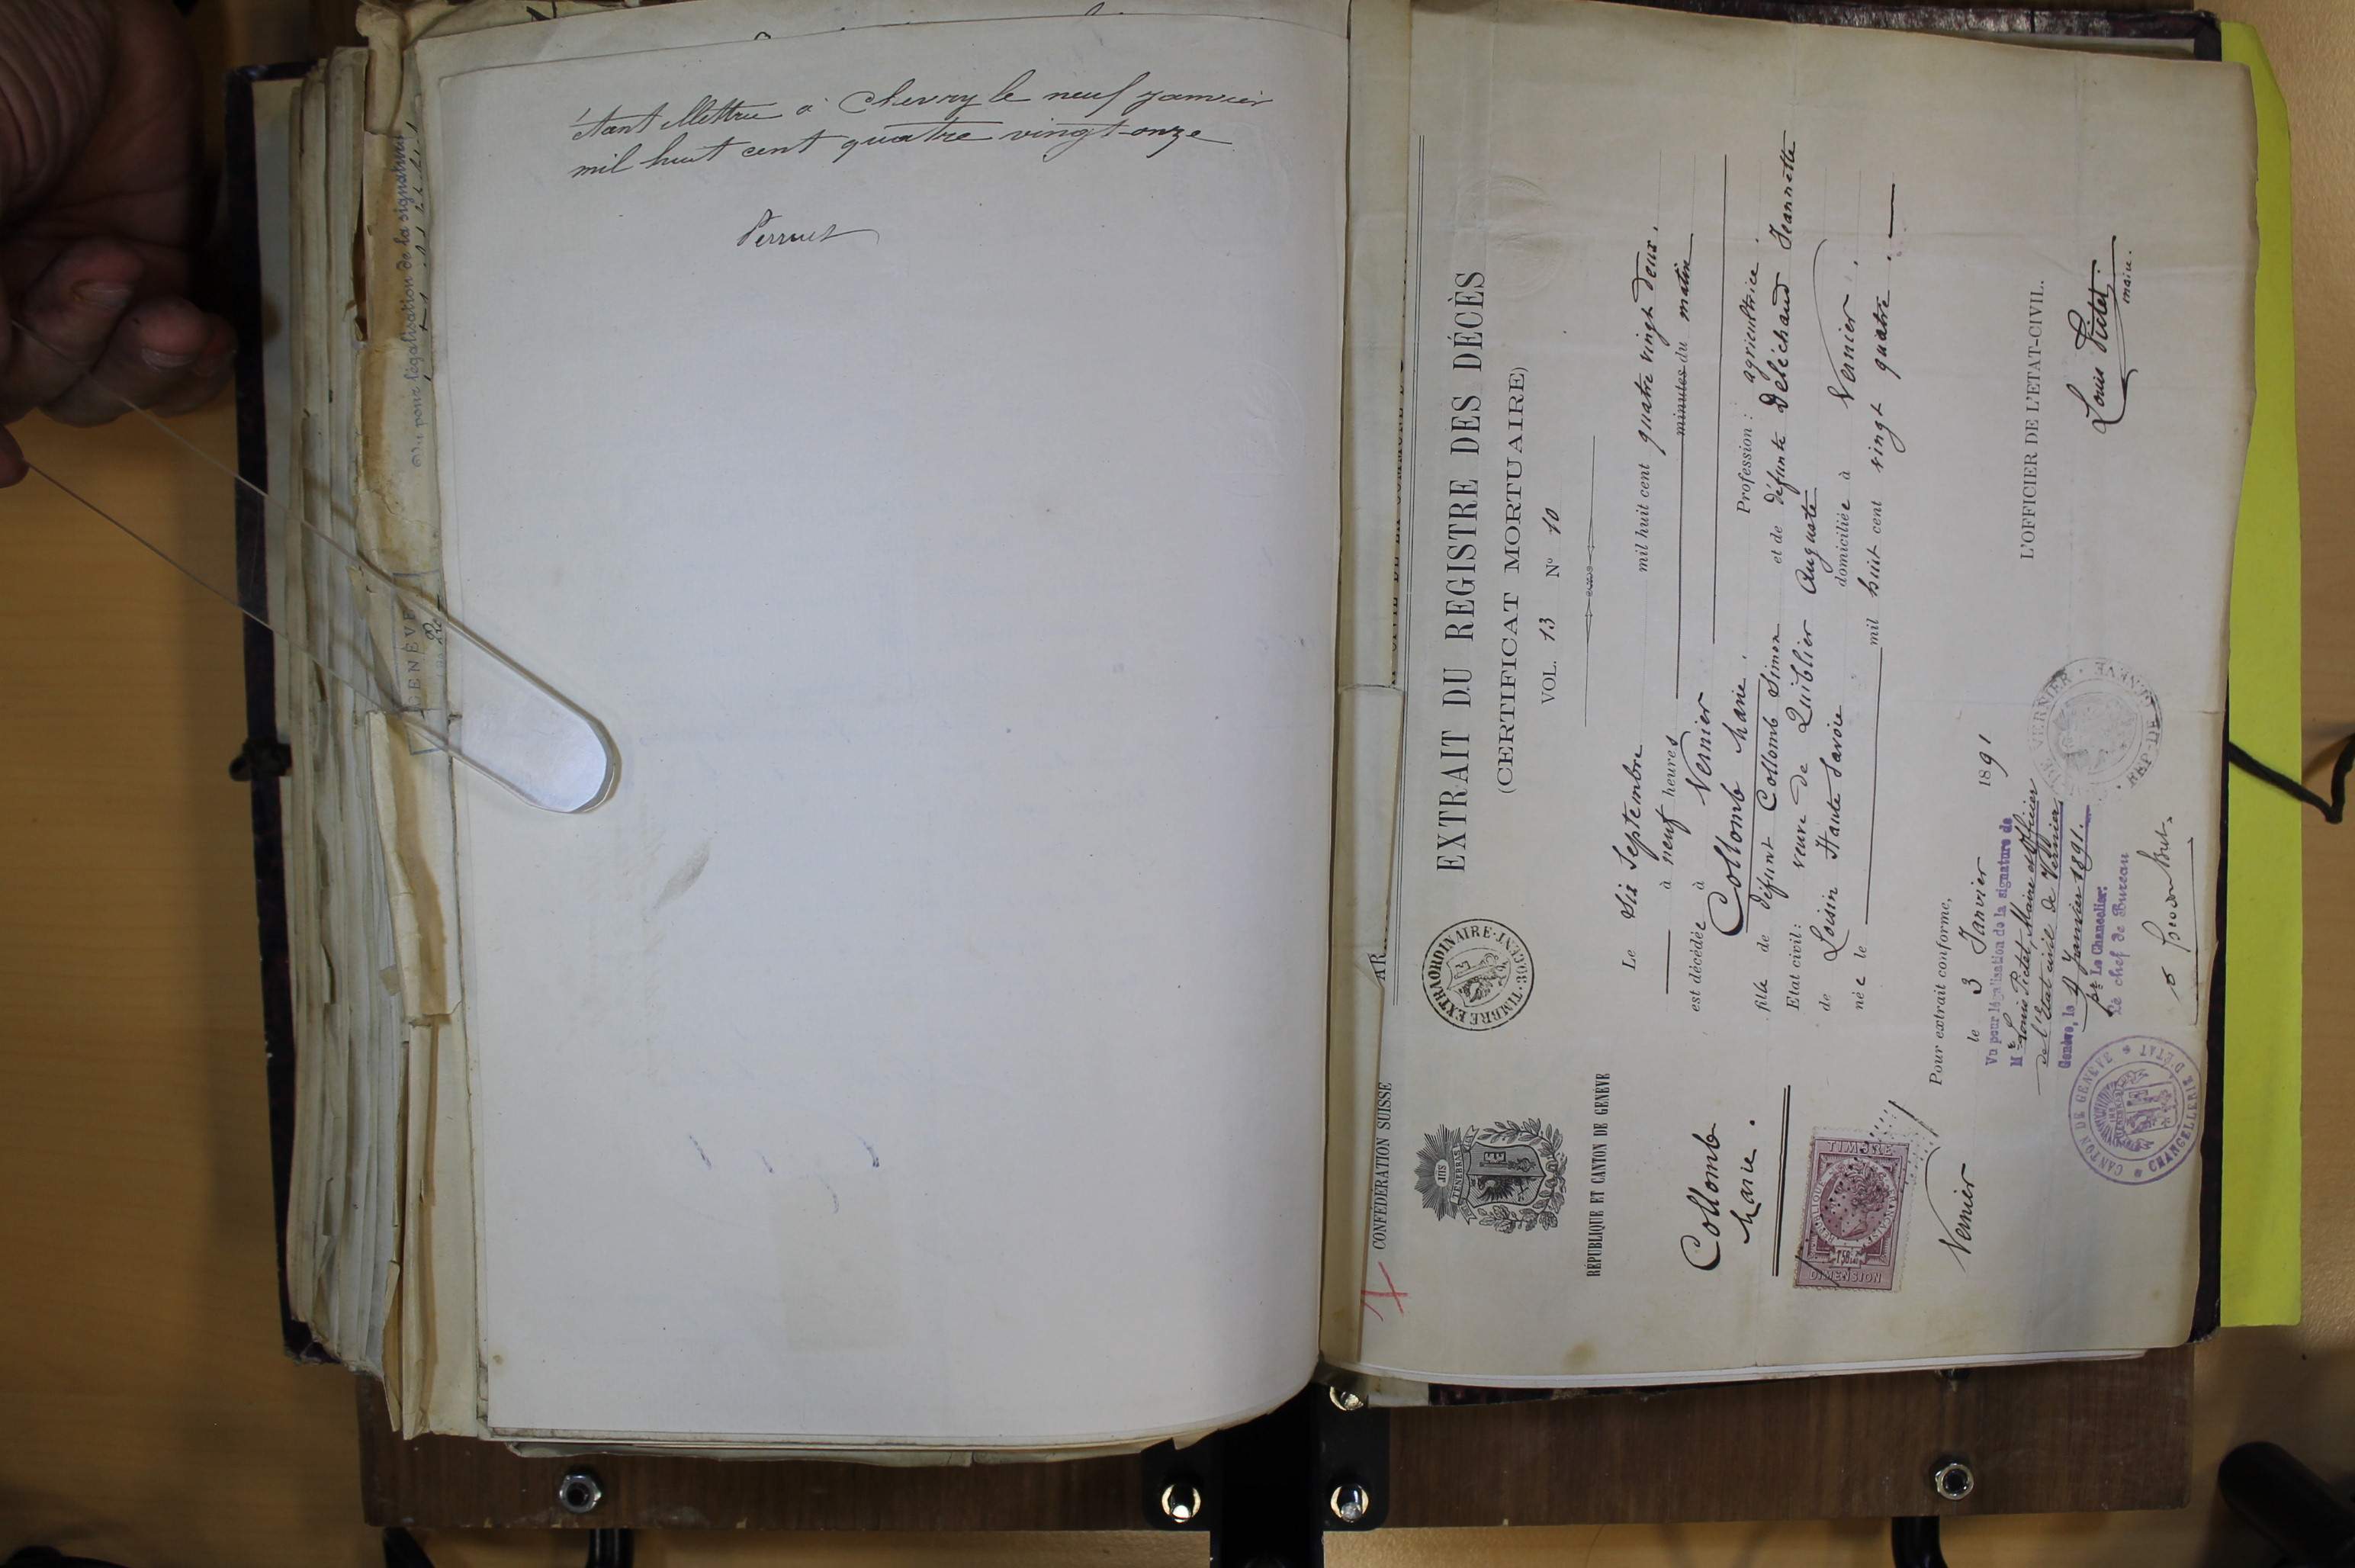 étant illettrée à Chevry le neuf janvier
mil huit cent quatre vingt-onze
Perruet
Vu pour légalisation de la signature
GENÈVE
CONFÉDÉRATION SUISSE
JUS
TENEBRAS
RÉPUBLIQUE ET CANTON DE GENÈVE
TIMBRE EXTRAORDINAIRE
EXTRAIT DU REGISTRE DES DÉCÈS
(CERTIFICAT MORTUAIRE)
VOL. 13 N° 10
Collomb
Marie.
Le Six Septembre mil huit cent quatre vingt deux,
à neuf heures minutes du matin
est décédée à Vernier
Collomb Marie.
Profession: agricultrice.
fille de défunt Collomb Simon et de défunte Deléchaud Jeannette
Etat civil: veuve de Quiblier Auguste
de Loisin Haute Savoie domiciliée à Vernier.
née le mil huit cent vingt quatre.
TIMBRE
RÉPUBLIQUE FRANÇAISE
DIMENSION
Pour extrait conforme,
Vernier le 3 Janvier 1891
L'OFFICIER DE L'ETAT-CIVIL.
Louis Pictet,
maire.
Vu pour légalisation de la signature de
Mr Louis Pictet, Maire et Officier
de l'Etat civil de Vernier
Genève, le Janvier 1891.
pr Le Chancelier:
Le chef de Bureau
CANTON DE GENEVE
CHANCELLERIE D'ÉTAT
VERNIER